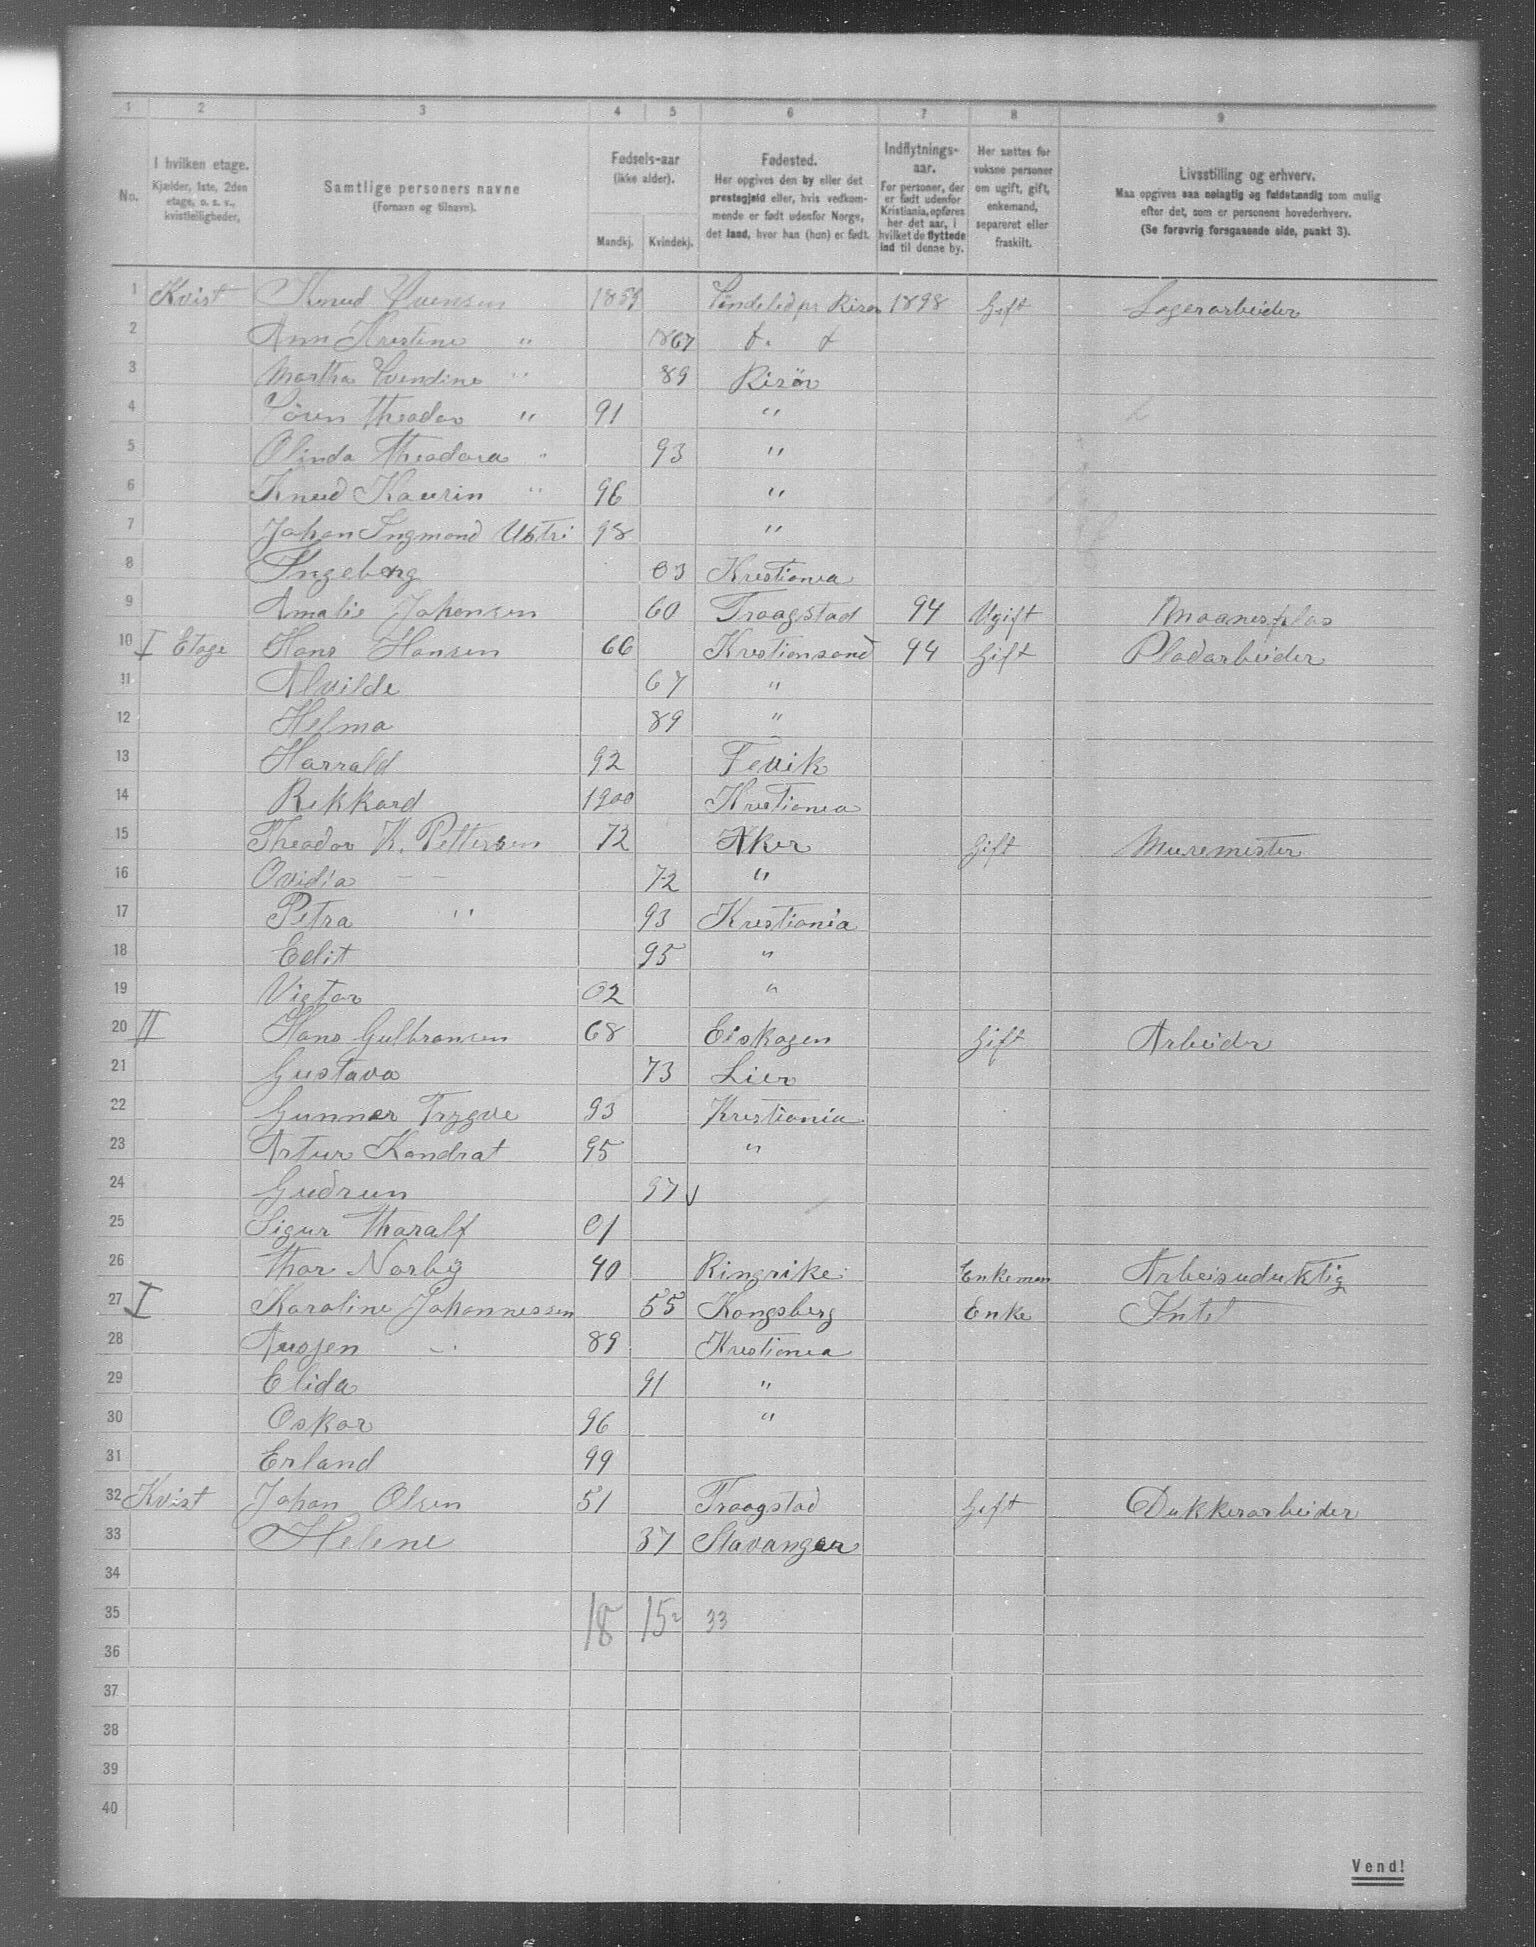 1 2 3 4 5 6 7 8 9
No.
I hvilken etage.
Kjælder, 1ste, 2den
etage, o. s. v.,
kvistleiligheder.
Samtlige personers navne
(Fornavn og tilnavn).
Fødsels-aar
(ikke alder).
Mandkj. Kvindekj.
Fødested.
Her opgives den by eller det
prestegjeld eller, hvis vedkom-
mende er født udenfor Norge,
det land, hvor han (hun) er født.
Indflytnings-
aar.
For personer, der
er født udenfor
Kristiania, opføres
her det aar, i
hvilket de flyttede
ind til denne by.
Her sættes for
voksne personer
om ugift, gift,
enkemand,
separeret eller
fraskilt.
Livsstilling og erhverv.
Maa opgives saa nøiagtig og fuldstændig som mulig
efter det, som er personens hovederhverv.
(Se forøvrig foregaaende side, punkt 3).
1 Kvist Knud Evensen 1855 Søndeled pr Risør 1898 Gift Lagerarbeider
2 Ann Kristine " 1867 d. d
3 Martha Evendine " 89 Risör
4 Sören Theodor " 91 "
5 Olinda Theodora " 93 "
6 Knud Kaurin " 96 "
7 Johan Ingmond 98 "
8 Ingeborg 03 Krestiania
9 Amalie Johansen 60 Traagstad 94 Ugift
10 I Etage Hans Hansen 66 Krestiansand 94 Gift Pladarbeider
11 Alvilde 67 "
12 Helma 89 "
13 Harrald 92 Fevik
14 Rikkard 1900 Krestiania
15 Theodor K. Pettersen 72 Aker Gift Muremester
16 Ovidia — — 72 "
17 Petra " 93 Krestiania
18 Edit 95 "
19 Vigtor 02 "
20 II Hans Gulbransen 68 Eiskogen Gift Arbeider
21 Gustava 73 Lier
22 Gunnar Trygve 93 Krestiania
23 Artur Kondrat 95 "
24 Gudrun 97
25 Sigur Tharalf 01
26 Thor Norby 40 Ringrike Enkeman Arbeisuduktig
27 I Karoline Johannessen 55 Kongsberg Enke Intet
28 89 Krestiania
29 Elida 91 "
30 Oskar 96 "
31 Erland 99
32 Kvist Johan Olsen 51 Traagstad Gift Dukkerarbeider
33 Helene 37 Stavanger
34
35 18 15 33
36
37
38
39
40
Vend!